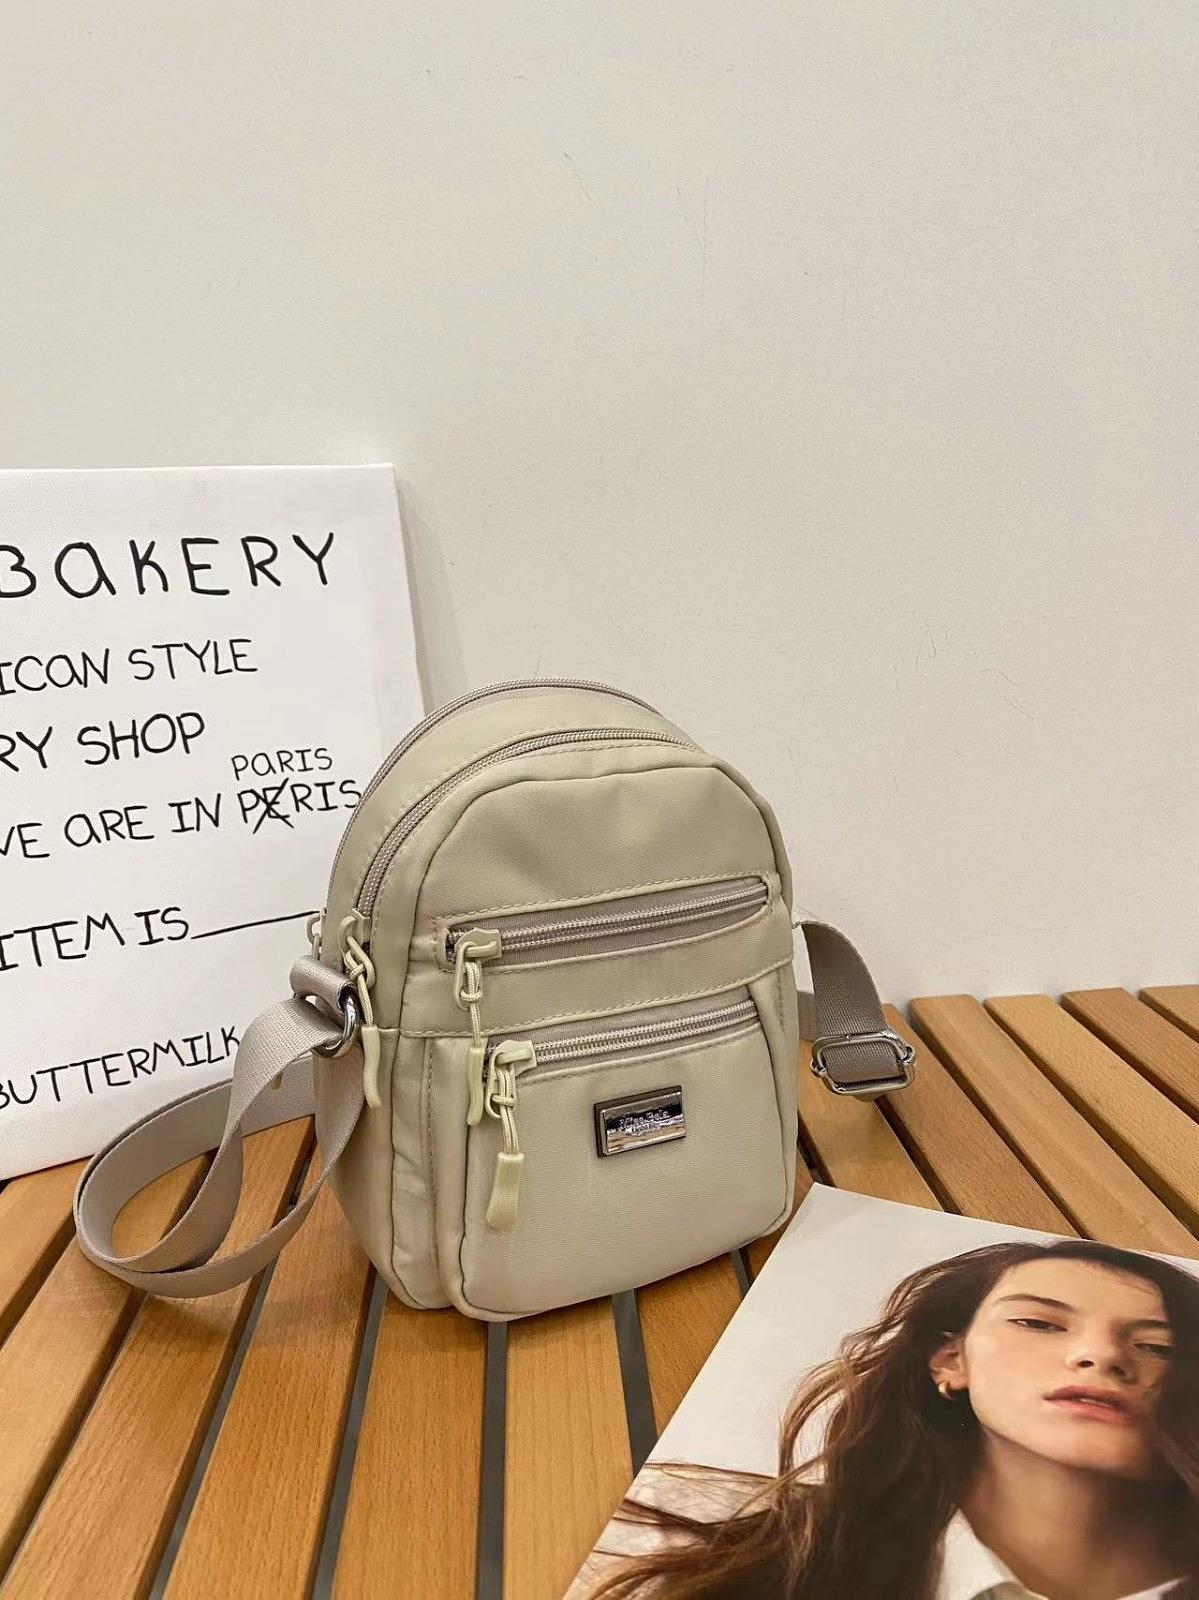 BAKERY
ICAN STYLE
RY SHOP
PARIS
WE ARE IN PERIS
ITEM IS
BUTTERMILK